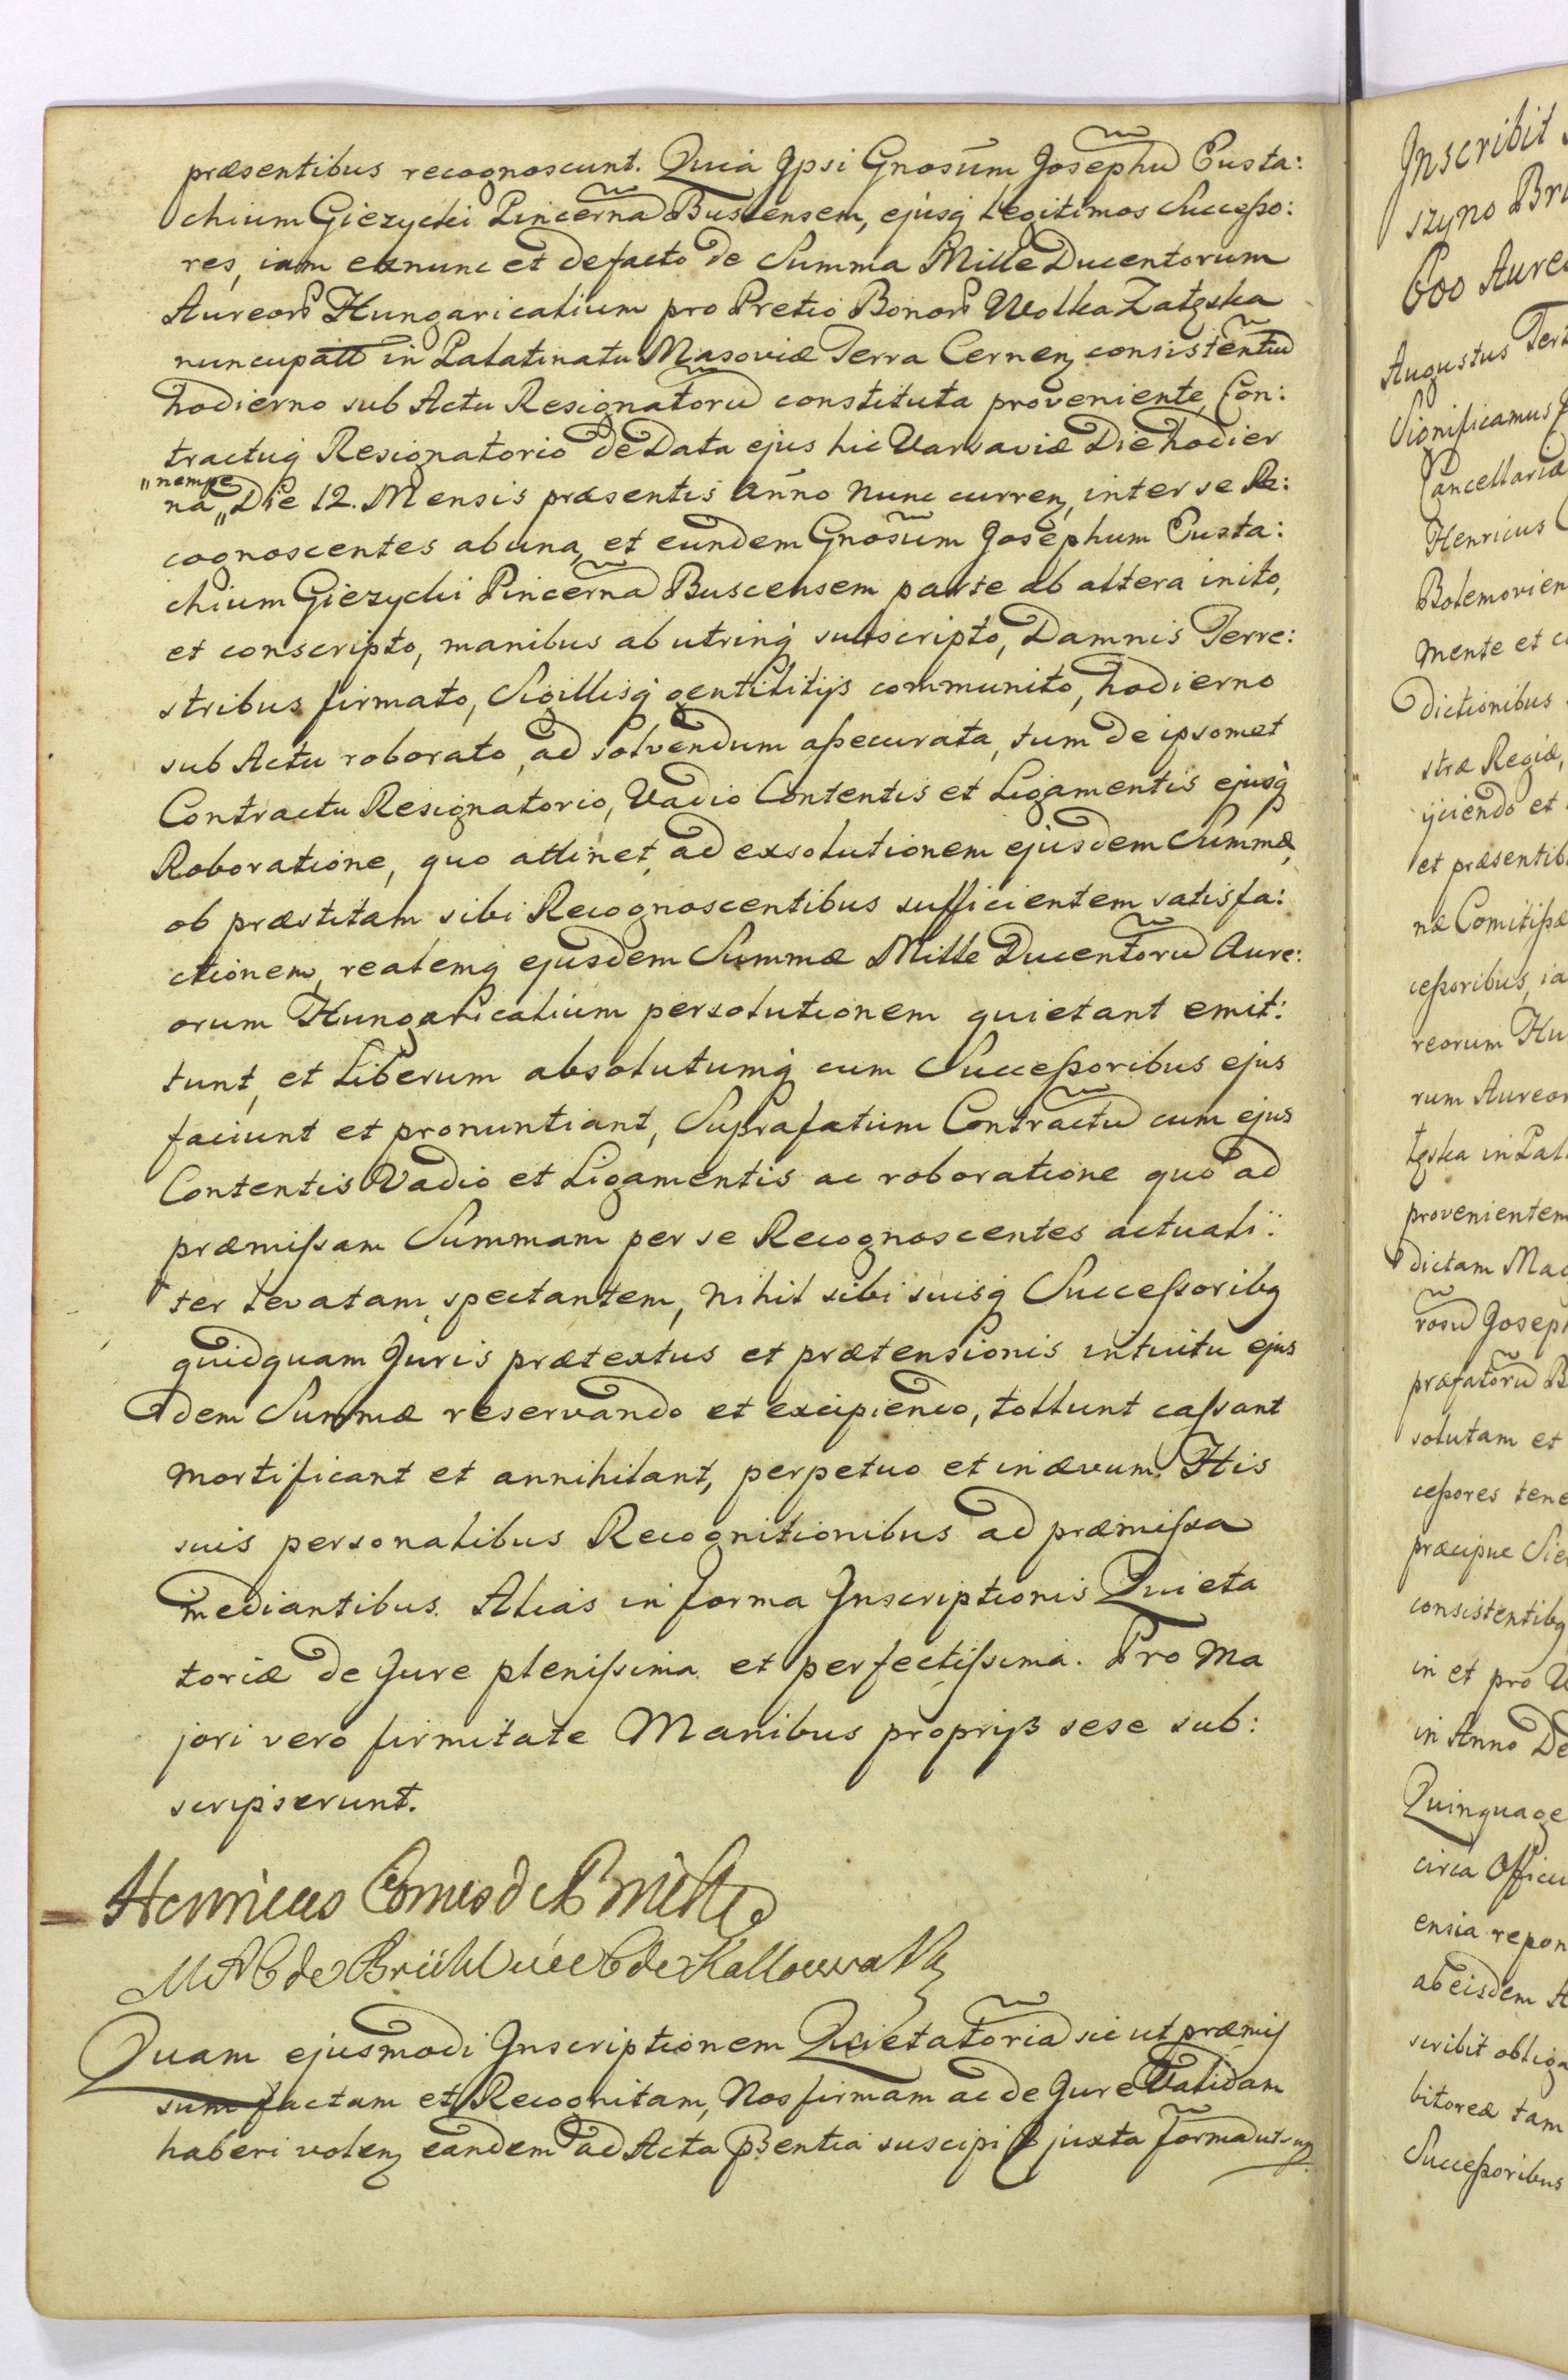 præsentibus recognoscunt. Quia Ipsi Gnosum Josephu Eusta:
chium Giezycki Pincerna Buscensem, ejusq Legitimos Successo:
res, iam exnunc et defacto de Summa Mille Ducentorum
Aureor Hungaricalium pro Pretio Bonor Wolka Zatzska
nuncupatt in Palatinatu Masoviæ Terra Cernen consistentiu
hodierno sub Actu Resignatoru constituta proveniente, Con:
tractuq Resignatorio de Data ejus hic Varsaviæ Die hodier
na „nempe„ Die 12. Mensis præsentis Anno nunc curren, inter se Re:
cognoscentes ab una, et eundem Gnosum Josephum Eusta:
chium Giezycki Pincerna Buscensem parte ab altera inito,
et conscripto, manibus ab utrinq subscripto, Damnis Terre:
stribus firmato, Sigillisq gentilitijs communito, hodierno
sub Actu roborato, ad solvendum assecurata, tum de ipsomet
Contractu Resignatorio, Vadio Contentis et Ligamentis ejusq
Roboratione, quo attinet, ad exsolutionem ejusdem Summæ,
ob præstitam sibi Recognoscentibus sufficientem satisfa:
ctionem, realemq ejusdem Summæ Mille Ducentoru Aure:
orum Hungaricalium persolutionem quietant emit:
tunt, et Liberum absolutumq cum Successoribus ejus
faciunt et pronuntiant, Suprafatum Contractu cum ejus
Contentis Vadio et Ligamentis ac roboratione quo ad
præmissam Summam per se Recognoscentes actuali:
ter levatam, spectantem, nihil sibi suisq Successoribq
quidquam Juris prætextus et prætensionis intuitu ejus
dem Summæ reservando et excipiendo, tollunt cassant
mortificant et annihilant, perpetuo et in ævum. His
suis personalibus Recognitionibus ad præmissa
mediantibus. Alias in forma Inscriptionis Quieta
toriæ de Jure plenissima et perfectissima. Pro Ma
jori vero firmitate Manibus proprijs sese sub:
scripserunt.
Henricus Comes de Brühl
MAC de Brühl née C de Kollowrath
Quam ejusmodi Inscriptionem Quietatoria sic ut præmis
sum factam et Recognitam, Nos firmam ac de Jure Validam
haberi volen eandem ad Acta pñsentia suscipi juxta forma ut sup
Inscribit
szyno
600 Aure
Augustus Tert
Significamus
Cancellariæ
Henricus
Bolemovien
mente et c
dictionibus
stræ Regiæ,
ijciendo et
et præsentib
næ Comitissæ
cessoribus, ia
reorum Hu
rum Aureor
tzska in Pal
provenientem
dictam Mag
rosu Joseph
præfatoru B
solutam et
cessores tene
præcipue Sie
consistentibq
in et pro
in Anno De
Quinquage
circa Offici
ensia repon
ab eisdem A
scribit obliga
bitorea tam
Successoribus